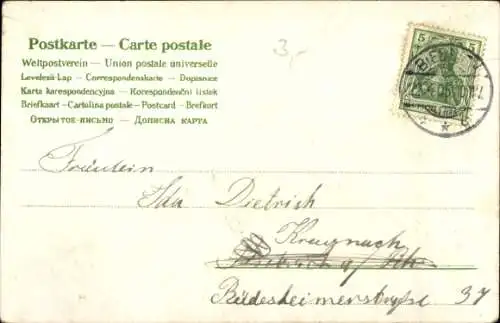 Postkarte — Carte postale
Weltpostverein — Union postale universelle
Levelezö-Lap — Correspondenskarte — Dopisnice
Karta korespondencyjna — Korespondenční lístek
Briefkaart — Cartolina postale — Postcard — Brefkort
Открытое письмо — Дописна карта
3,-
5 5
Fräulein
Ida Dietrich
Kreuznach
Büdesheimerstraße 37